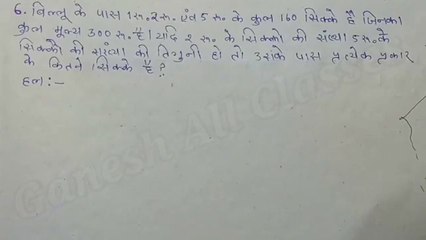 6. बिल्लू के पास 1 रू. 2 रू. एंव 5 रू. के कुल 160 सिक्के है जिनका
कुल मूल्य 300 रू. है। यदि 2 रू. के सिक्को की संख्या 5 रू. के
सिक्को की संख्या की तिगुनी हो तो उसके पास प्रत्येक प्रकार
के कितने सिक्के है?
हल :-
Ganesh All Classes